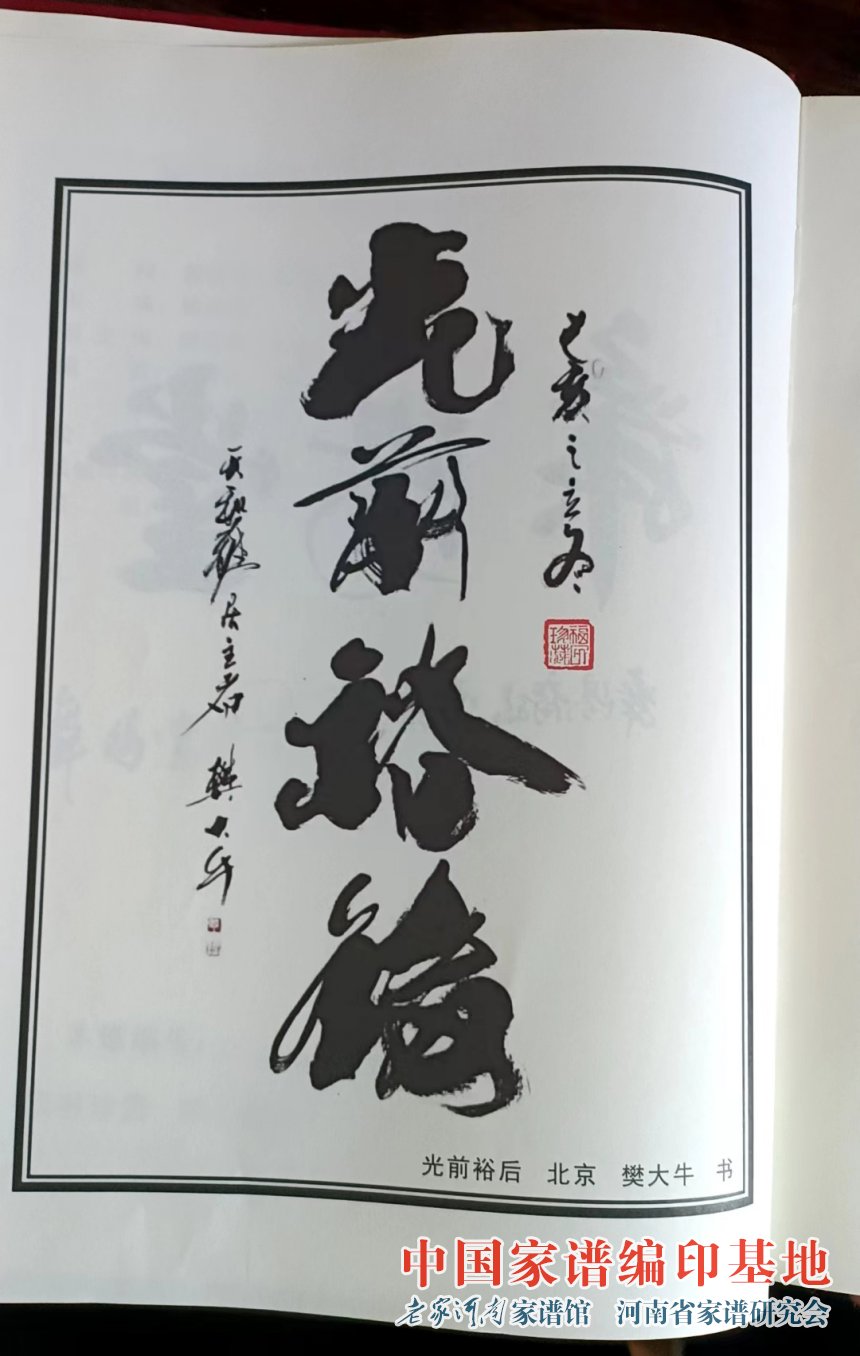 己亥之立冬
光前裕後
居主者 樊大牛
光前裕后 北京 樊大牛 书
中国家谱编印基地
老家河南家谱馆 河南省家谱研究会